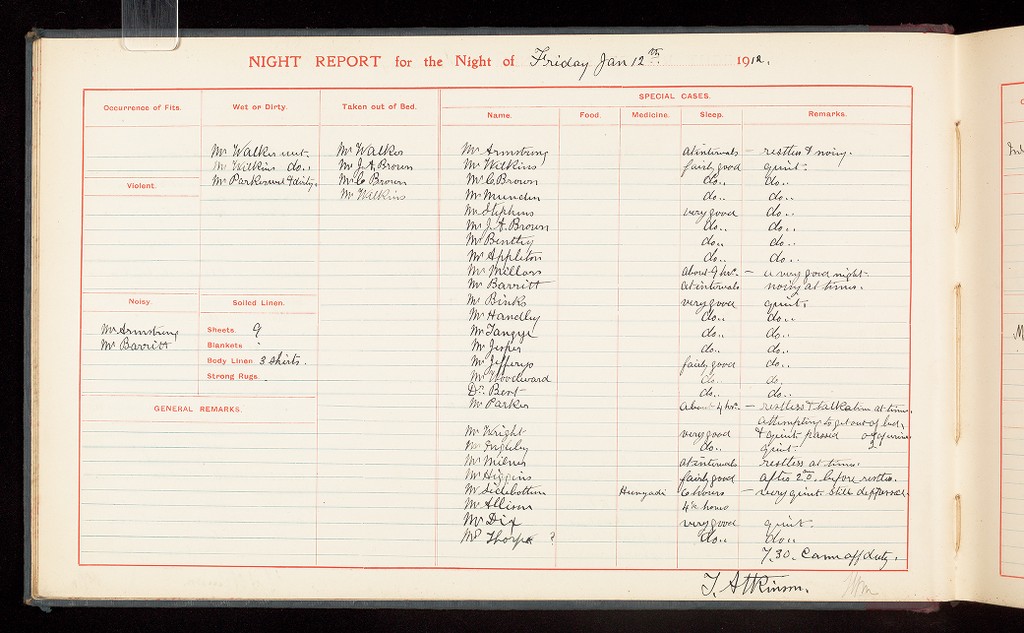 NIGHT REPORT for the Night of Friday Jan 12th 1912.
Occurrence of Fits.
Wet or Dirty.
Mr Walker wet.
Mr Wilkins do..
Mr Parker wet & dirty.
Taken out of Bed.
Mr Walker
Mr J. A. Brown
Mr C Brown
Mr Wilkins
Violent.
Noisy.
Mr Armstrong
Mr Barritt
Soiled Linen.
Sheets. 9
Blankets "
Body Linen 3 shirts.
Strong Rugs.
GENERAL REMARKS.
SPECIAL CASES.
Name. Food. Medicine. Sleep. Remarks.
Mr Armstrong at intervals — restless & noisy.
Mr Wilkins fairly good quiet.
Mr C. Brown do.. do..
Mr Munden do.. do..
Mr Stephens very good do..
Mr J. A. Brown do.. do..
Mr Bentley do.. do..
Mr Appleton do.. do..
Mr Millars about 9 hrs. — a very good night.
Mr Barritt at intervals noisy at times.
Mr Binks very good quiet.
Mr Handley do.. do..
Mr Tangye do.. do..
Mr Jesper do.. do..
Mr Jefferys fairly good do..
Mr Woodward do. do.
Dr. Bent do.. do..
Mr Parker about 4 hrs. — restless & talkative at times
attempting to get out of bed,
Mr Wright very good & quiet passed oz of urine
Mr do.. quiet.
Mr Milner at intervals restless at times.
Mr Higgins fairly good after 2 before restless.
Mr Sidebottom Hunyadi 6 hours — very quiet. still depressed.
Mr Allison 4½ hours
Mr Dix very good quiet.
Mr Thorpe ? do.. do..
7.30. Came off duty.
T. Atkinson.